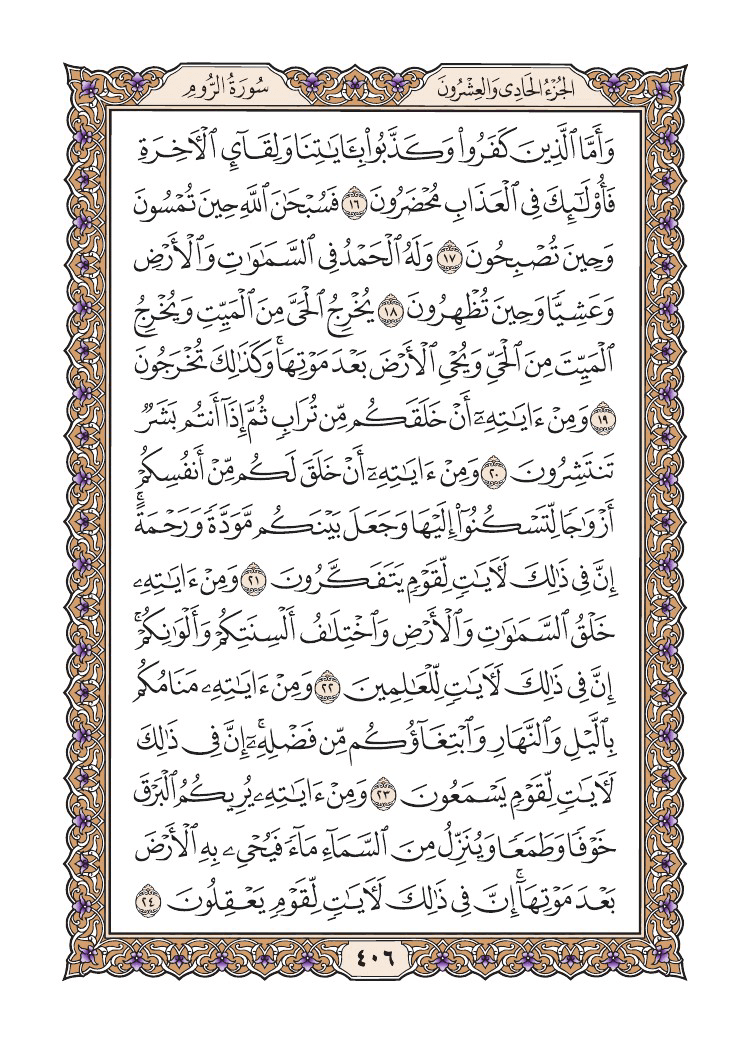 سُورَةُ الرُّومِ
الجُزْءُ الحَادِى وَالعِشْرُونَ
وَأَمَّا ٱلَّذِينَ كَفَرُوا۟ وَكَذَّبُوا۟ بِـَٔايَـٰتِنَا وَلِقَآئِ ٱلْـَٔاخِرَةِ
فَأُو۟لَـٰٓئِكَ فِى ٱلْعَذَابِ مُحْضَرُونَ ١٦ فَسُبْحَـٰنَ ٱللَّهِ حِينَ تُمْسُونَ
وَحِينَ تُصْبِحُونَ ١٧ وَلَهُ ٱلْحَمْدُ فِى ٱلسَّمَـٰوَٰتِ وَٱلْأَرْضِ
وَعَشِيًّا وَحِينَ تُظْهِرُونَ ١٨ يُخْرِجُ ٱلْحَىَّ مِنَ ٱلْمَيِّتِ وَيُخْرِجُ
ٱلْمَيِّتَ مِنَ ٱلْحَىِّ وَيُحْىِ ٱلْأَرْضَ بَعْدَ مَوْتِهَا ۚ وَكَذَٰلِكَ تُخْرَجُونَ
١٩ وَمِنْ ءَايَـٰتِهِۦٓ أَنْ خَلَقَكُم مِّن تُرَابٍ ثُمَّ إِذَآ أَنتُم بَشَرٌ
تَنتَشِرُونَ ٢٠ وَمِنْ ءَايَـٰتِهِۦٓ أَنْ خَلَقَ لَكُم مِّنْ أَنفُسِكُمْ
أَزْوَٰجًا لِّتَسْكُنُوٓا۟ إِلَيْهَا وَجَعَلَ بَيْنَكُم مَّوَدَّةً وَرَحْمَةً ۚ
إِنَّ فِى ذَٰلِكَ لَـَٔايَـٰتٍ لِّقَوْمٍ يَتَفَكَّرُونَ ٢١ وَمِنْ ءَايَـٰتِهِۦ
خَلْقُ ٱلسَّمَـٰوَٰتِ وَٱلْأَرْضِ وَٱخْتِلَـٰفُ أَلْسِنَتِكُمْ وَأَلْوَٰنِكُمْ ۚ
إِنَّ فِى ذَٰلِكَ لَـَٔايَـٰتٍ لِّلْعَـٰلِمِينَ ٢٢ وَمِنْ ءَايَـٰتِهِۦ مَنَامُكُم
بِٱلَّيْلِ وَٱلنَّهَارِ وَٱبْتِغَآؤُكُم مِّن فَضْلِهِۦٓ ۚ إِنَّ فِى ذَٰلِكَ
لَـَٔايَـٰتٍ لِّقَوْمٍ يَسْمَعُونَ ٢٣ وَمِنْ ءَايَـٰتِهِۦ يُرِيكُمُ ٱلْبَرْقَ
خَوْفًا وَطَمَعًا وَيُنَزِّلُ مِنَ ٱلسَّمَآءِ مَآءً فَيُحْىِۦ بِهِ ٱلْأَرْضَ
بَعْدَ مَوْتِهَآ ۚ إِنَّ فِى ذَٰلِكَ لَـَٔايَـٰتٍ لِّقَوْمٍ يَعْقِلُونَ ٢٤
٤٠٦